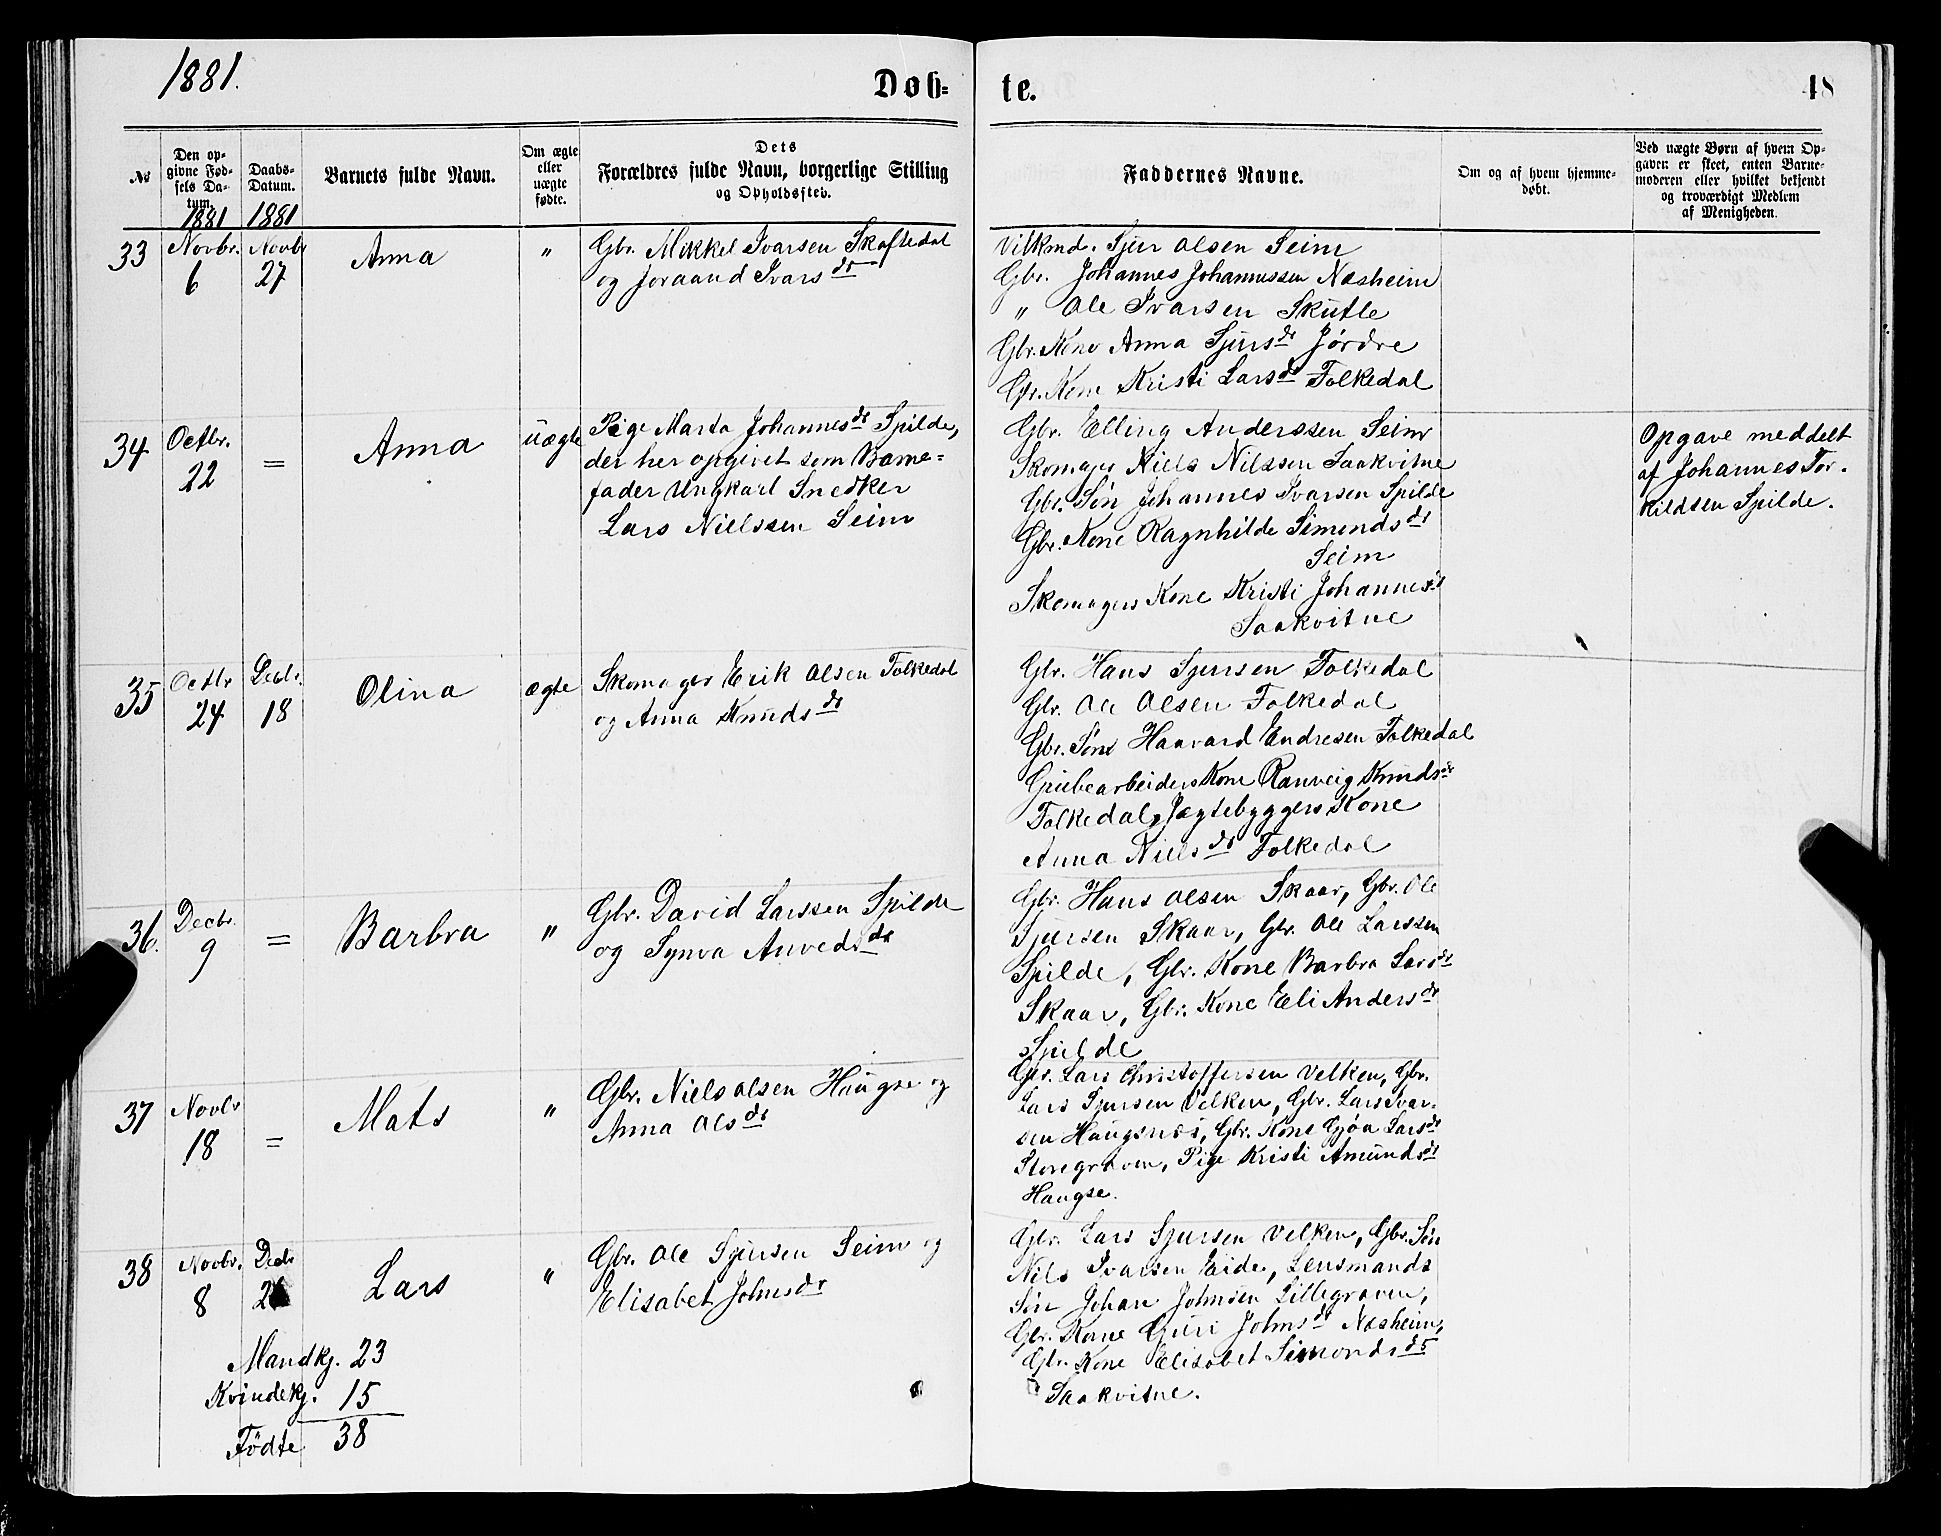 1881.
Døb=
te.
48
No
Den op-
givne Fød-
sels Da-
tum.
1881
Daabs-
Datum.
1881
Barnets fulde Navn.
Om ægte
eller
uægte
fødte.
Dets
Forældres fulde Navn, borgerlige Stilling
og Opholdssted.
Faddernes Navne.
Om og af hvem hjemme-
døbt.
Ved uægte Børn af hvem Op-
gaven er skeet, enten Barne-
moderen eller hvilket bekjendt
og troværdigt Medlem
af Menigheden.
33
Novbr.
6
Novbr
27
Anna
"
Gbr. Mikkel Ivarsen Skaftedal
og Joraand Ivarsdr
Vilkmd. Sjur Olsen Seim
Gbr. Johannes Johannessen Næsheim
" Ole Ivarsen Skutle
Gbr. Kone Anna Sjursdr Jørdre
Gbr. Kone Kristi Larsdr Folkedal
34
Octbr.
22
=
Anna
uægte
Pige Marta Johannesdr Spilde,
der her opgivet som Barne=
fader Ungkarl Snedker
Lars Nielssen Seim
Gbr. Elling Anderssen Seim
Skomager Niels Nilssen Saakvitne
Gbr. Søn Johannes Ivarsen Spilde
Gbr. Kone Ragnhilde Simondsdr
Seim
Skomagers Kone Kristi Johannesdr
Saakvitne
Opgave meddelt
af Johannes Tor-
kildsen Spilde.
35
Octbr
24
Decbr.
18
Olina
ægte
Skomager Erik Olsen Folkedal
og Anna Knudsdr
Gbr. Hans Sjursen Folkedal
Gbr. Ole Olsen Folkedal
Gbr. Søn Haavard Endresen Folkedal
Grubearbeiders Kone Ranveig Knudsdr
Folkedal, Jagtebyggers Kone
Anna Nielsdr Folkedal
36.
Decbr.
9
=
Barbra
"
Gbr. David Larssen Spilde
og Synva Anvedsdr
Gbr. Hans Olsen Skaar, Gbr. Ole
Sjursen Skaar, Gbr. Ole Larssen
Spilde, Gbr. Kone Barbra Larsdr
Skaar, Gbr. Kone Eli Andersdr
Spilde
37
Novbr
18
=
Mats
"
Gbr. Niels Olsen Haugse og
Anna Olsdr
Gbr. Lars Christoffersen Velken, Gbr.
Lars Sjursen Velken, Gbr. Lars Ivar-
sen Haugsnes, Gbr. Kone Gjøa Larsdr
Storegraven, Pige Kristi Amundsdr
Haugse.
38
Novbr.
8
Decbr
26
Lars
"
Gbr. Ole Sjursen Seim og
Elisabet Johnsdr
Gbr. Lars Sjursen Velken, Gbr. Søn
Nils Ivarsen Eide, Lensmands
Søn Johan Johnsen Lillegraven,
Gbr. Kone Guri Johnsdr Næsheim,
Gbr. Kone Elisabet Simondsdr
Saakvitne.
Mandkj. 23
Kvindekj. 15
Födte 38